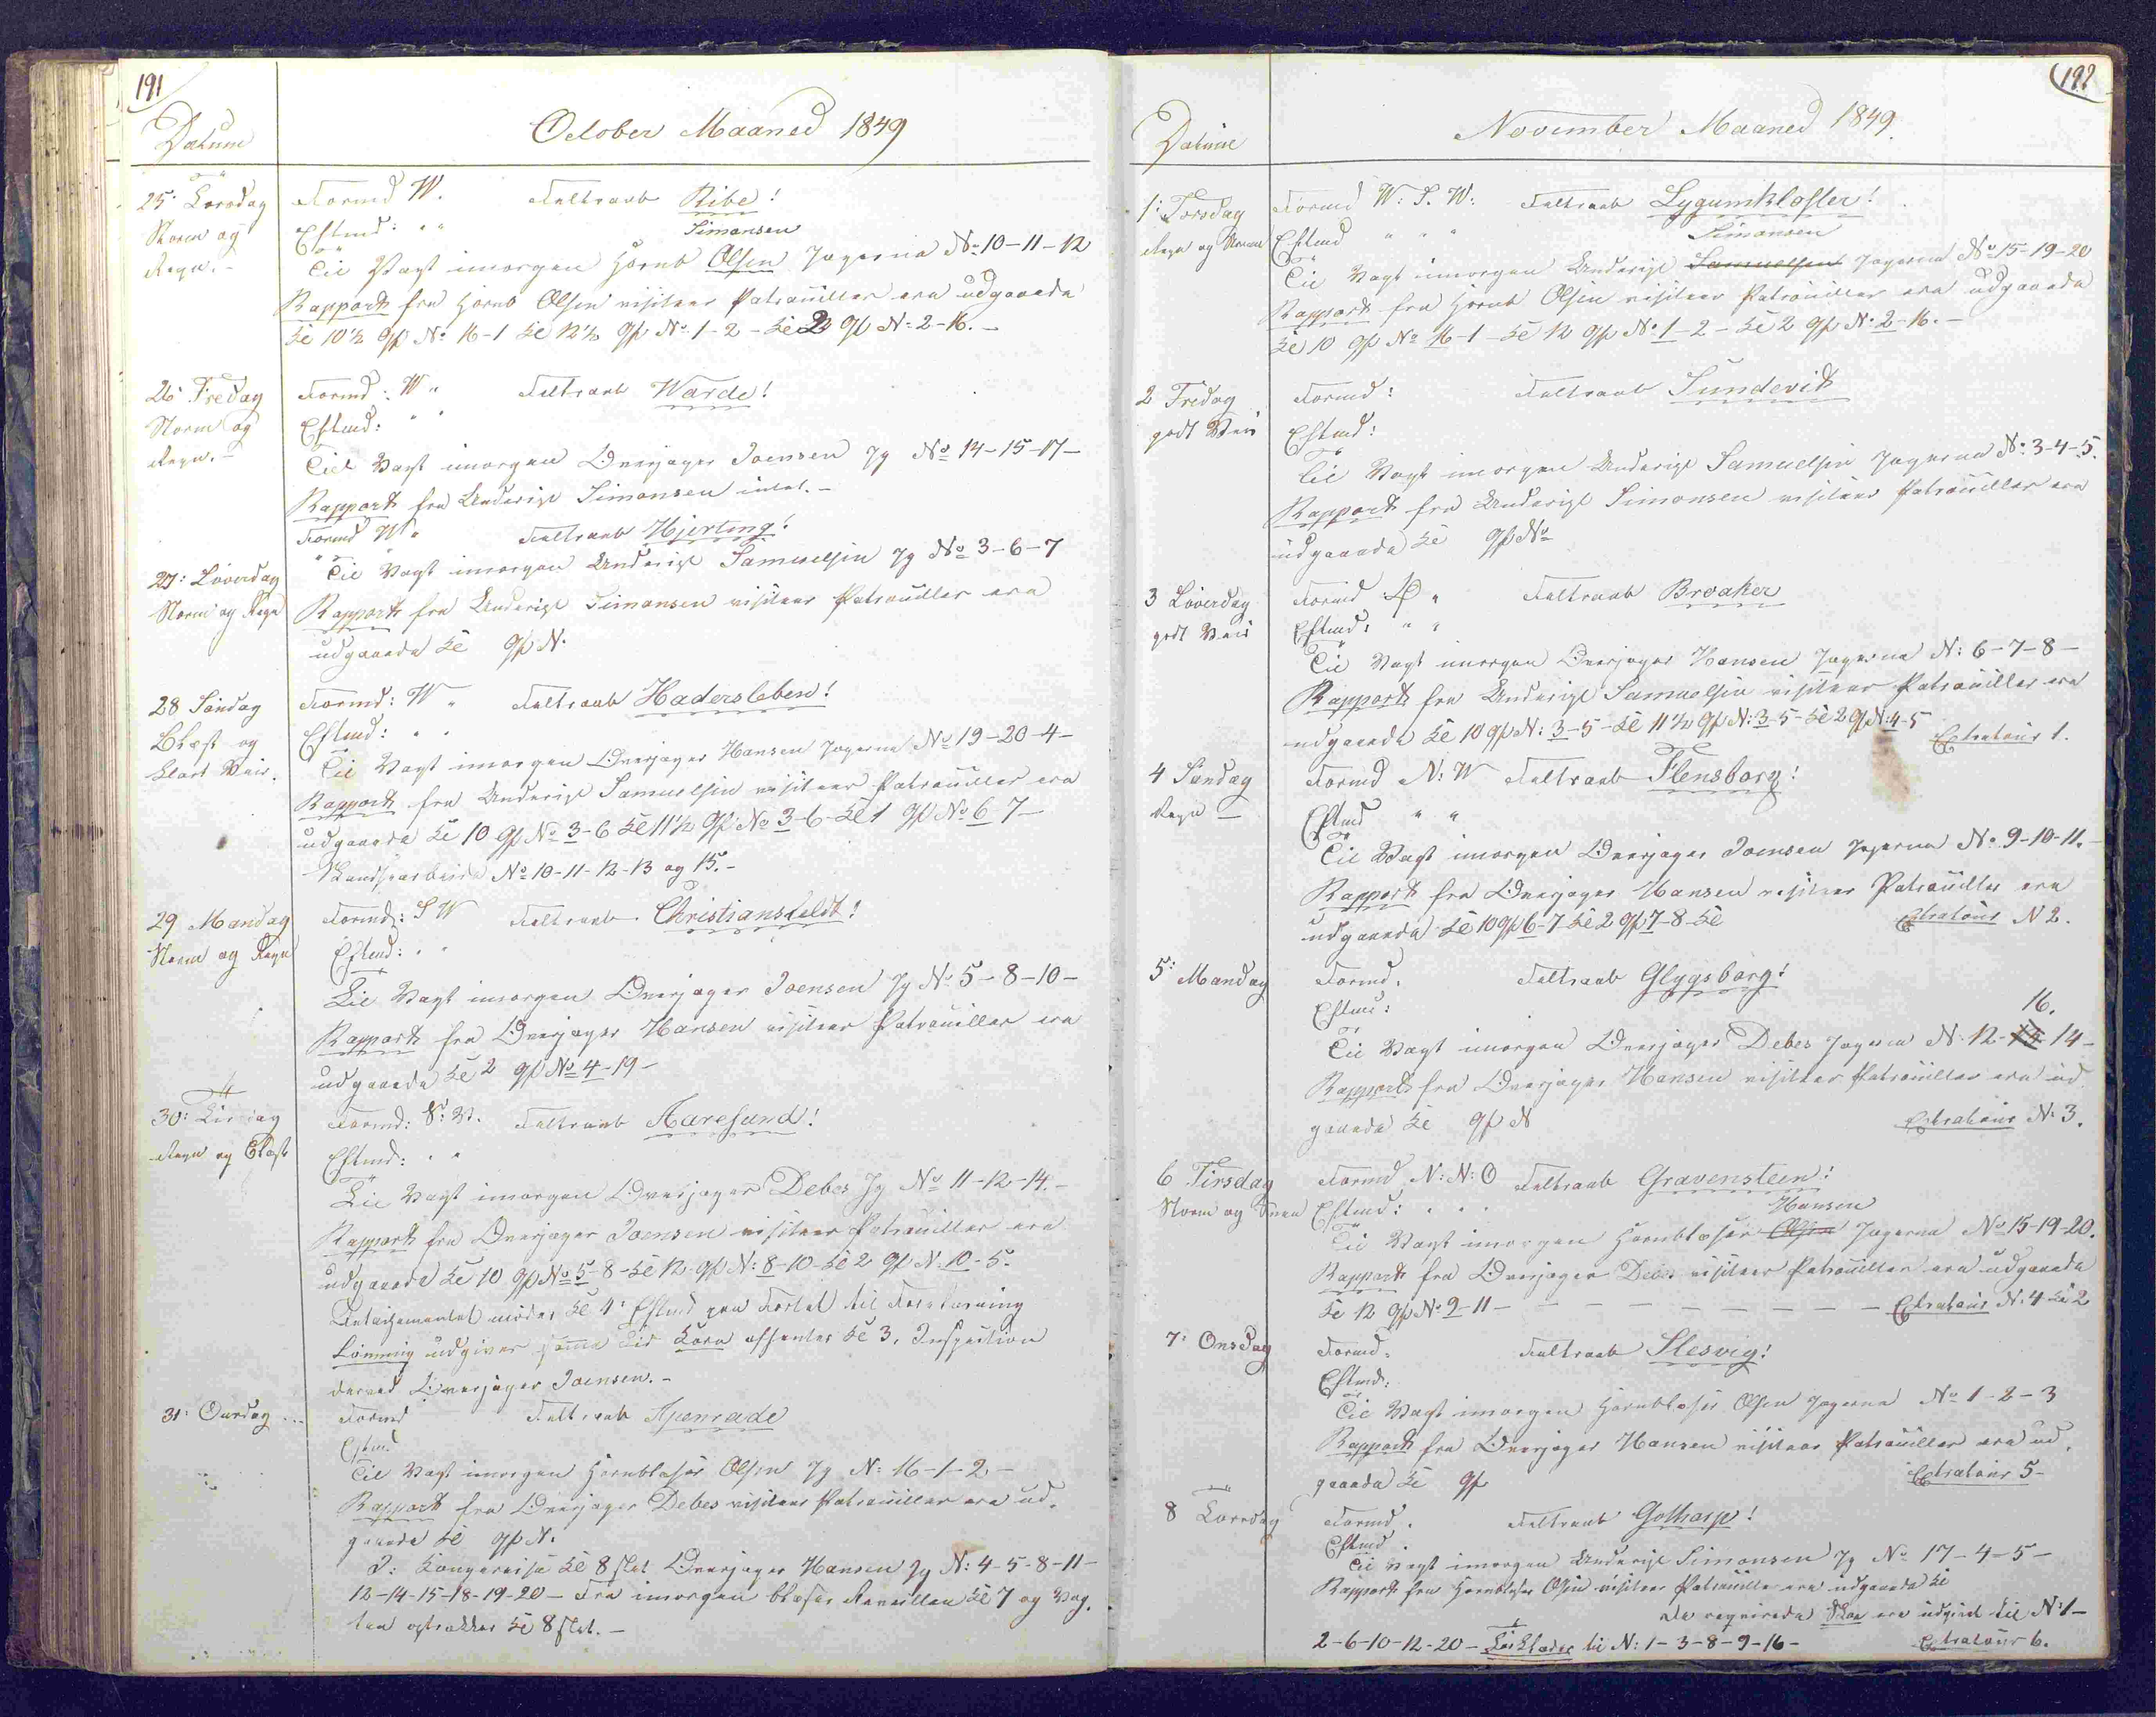 191
Datum
October Maaned 1849
25: Torsdag Formd W. Feltraab Ribe!
Storm og Eftmd: " " Simonsen
Regn. - Til Vagt imorgen Hornb Olsen Jægerne No 10-11-12
Rapport fra Hornb Olsen visiteer Patrouiller ere udgaaede
Kl 10½ gp No 16-1 Kl 12½ gp No 1-2 - Kl 2 gp N: 2-16. -
26 Fredag Formd: W " Feltraab Warde!
Storm og Eftmd: " "
Regn. - Til Vagt imorgen Overjæger Joensen Jg No 14-15-17-
Rapport fra Underigl Simonsen intet. -
Formd W " Feltraab Hjerting!
27: Löverdag Til Vagt imorgen Underigl Samuelsen Jg No 3-6-7
Storm og Regn Rapport fra Underigl Simonsen visiteer Patrouiller ere
udgaaede Kl gp N.
28 Söndag Formd: W " Feltraab Hadersleben!
Blæst og Eftmd: " "
klart Veir. Til Vagt imorgen Overjæger Hansen Jægerne No 19-20-4-
Rapport fra Underigl Samuelsen visiteer Patrouiller ere
udgaaede Kl 10 gp No 3-6 Kl 11½ gp No 3-6- Kl 1 gp No 6 7-
Skandsearbeide No 10-11-12-13 og 15. -
29 Mandag Formd: S W Feltraab Christiansfeldt!
Storm og Regn Eftmd: " "
Til Vagt imorgen Overjæger Joensen Jg No 5-8-10-
Rapport fra Overjæger Hansen visiteer Patrouiller ere
udgaaede Kl 2 gp No 4-19-
30: Tirsdag Formd: S. V. Feltraab Aaresund!
Regn og Blæst Eftmd: " "
Til Vagt imorgen Overjæger Debes Jg No 11-12-14. -
Rapport fra Overjæger Joensen visiteer Patrouiller ere
udgaaede Kl 10 gp No 5-8- Kl 12 gp N: 8-10- Kl 2 gp N. 10-5.
Detachementet möder Kl 4 Eftmd paa Fortet til
Lönning udgives samme Tid Korn afhentes Kl 3. Inspection
derved Overjæger Joensen. -
31: Onsdag Formd Feltraab Apenrade
Eftmd
Til Vagt imorgen Hornblæser Olsen Jg N: 16-1-2-
Rapport fra Overjæger Debes visiteer Patrouiller ere ud-
gaaede Kl gp N.
Kl 8 slet Overjæger Hansen Jg N: 4-5-8-11-
12-14-15-18-19-20- Fra imorgen blæses Reveillen Kl 7 og Vag-
ten optrækker Kl 8 slet. -
192
Datum
November Maaned 1849.
1: Torsdag Formd W: S. W: Feltraab Lygumkloster!
Regn og Storm Eftmd " " " Simonsen
Til Vagt imorgen Underigl Samuelsen Jægerne No 15-19-20
Rapport fra Hornb Olsen visiteer Patrouiller ere udgaaede
Kl 10 gp No 16-1- Kl 12 gp No 1-2- Kl 2 gp N: 2-16. -
2 Fredag Formd: Feltraab Sundevit
godt Veir Eftmd:
Til Vagt imorgen Underigl Samuelsen Jægerne N: 3-4-5.
Rapport fra Underigl Simonsen visiteer Patrouiller ere
udgaaede Kl gp No
3 Löverdag Formd " Feltraab Broaker
godt Veir Eftmd: " "
Til Vagt imorgen Overjæger Hansen Jægerne N: 6-7-8-
Rapport fra Underigl Samuelsen visiteer Patrouiller ere
udgaaede Kl 10 gp N: 3-5- Kl 11½ gp N: 3-5- Kl 2 gp N: 4-5
Extratour 1.
4 Söndag Formd N: W Feltraab Flensborg!
Regn - Eftmd " "
Til Vagt imorgen Overjæger Joensen Jægerne No 9-10-11.
Rapport fra Overjæger Hansen visiteer Patrouiller ere
udgaaede Kl 10 gp 6-7- Kl 2 gp 7-8- Kl Extratour N 2.
5: Mandag Formd. Feltraab Glygsborg!
Eftmd: 16.
Til Vagt imorgen Overjæger Debes Jægerne N. 12-15-14-
Rapport fra Overjæger Hansen visiteer Patrouiller ere ud
gaaede Kl gp N Extratour N: 3.
6 Tirsdag Formd N: N: O Feltraab Gravensteen!
Storm og Snee Eftmd: " " " Hansen
Til Vagt imorgen Hornblæser Olsen Jægerne No 15-19-20.
Rapport fra Overjæger Debes visiteer Patrouiller ere udgaaede
Kl 12 gp No 9-11- - - - - - - - Extratour N: 4 Kl 2
7: Onsdag Formd. Feltraab Slesvig!
Eftmd:
Til Vagt imorgen Hornblæser Olsen Jægerne No 1-2-3
Rapport fra Overjæger Hansen visiteer Patrouiller ere ud-
gaaede Kl gp Extratour 5-
8 Torsdag Formd. Feltraab Gottorp!
Eftmd.
Til Vagt imorgen Underigl Simonsen Jg No 17-4-5-
Rapport fra Hornblæser Olsen visiteer Patrouille ere udgaaede Kl
De reqvirede Skoe ere udgivet til N: 1-
2-6-10-12-20- til N: 1-3-8-9-16- Extratour 6.